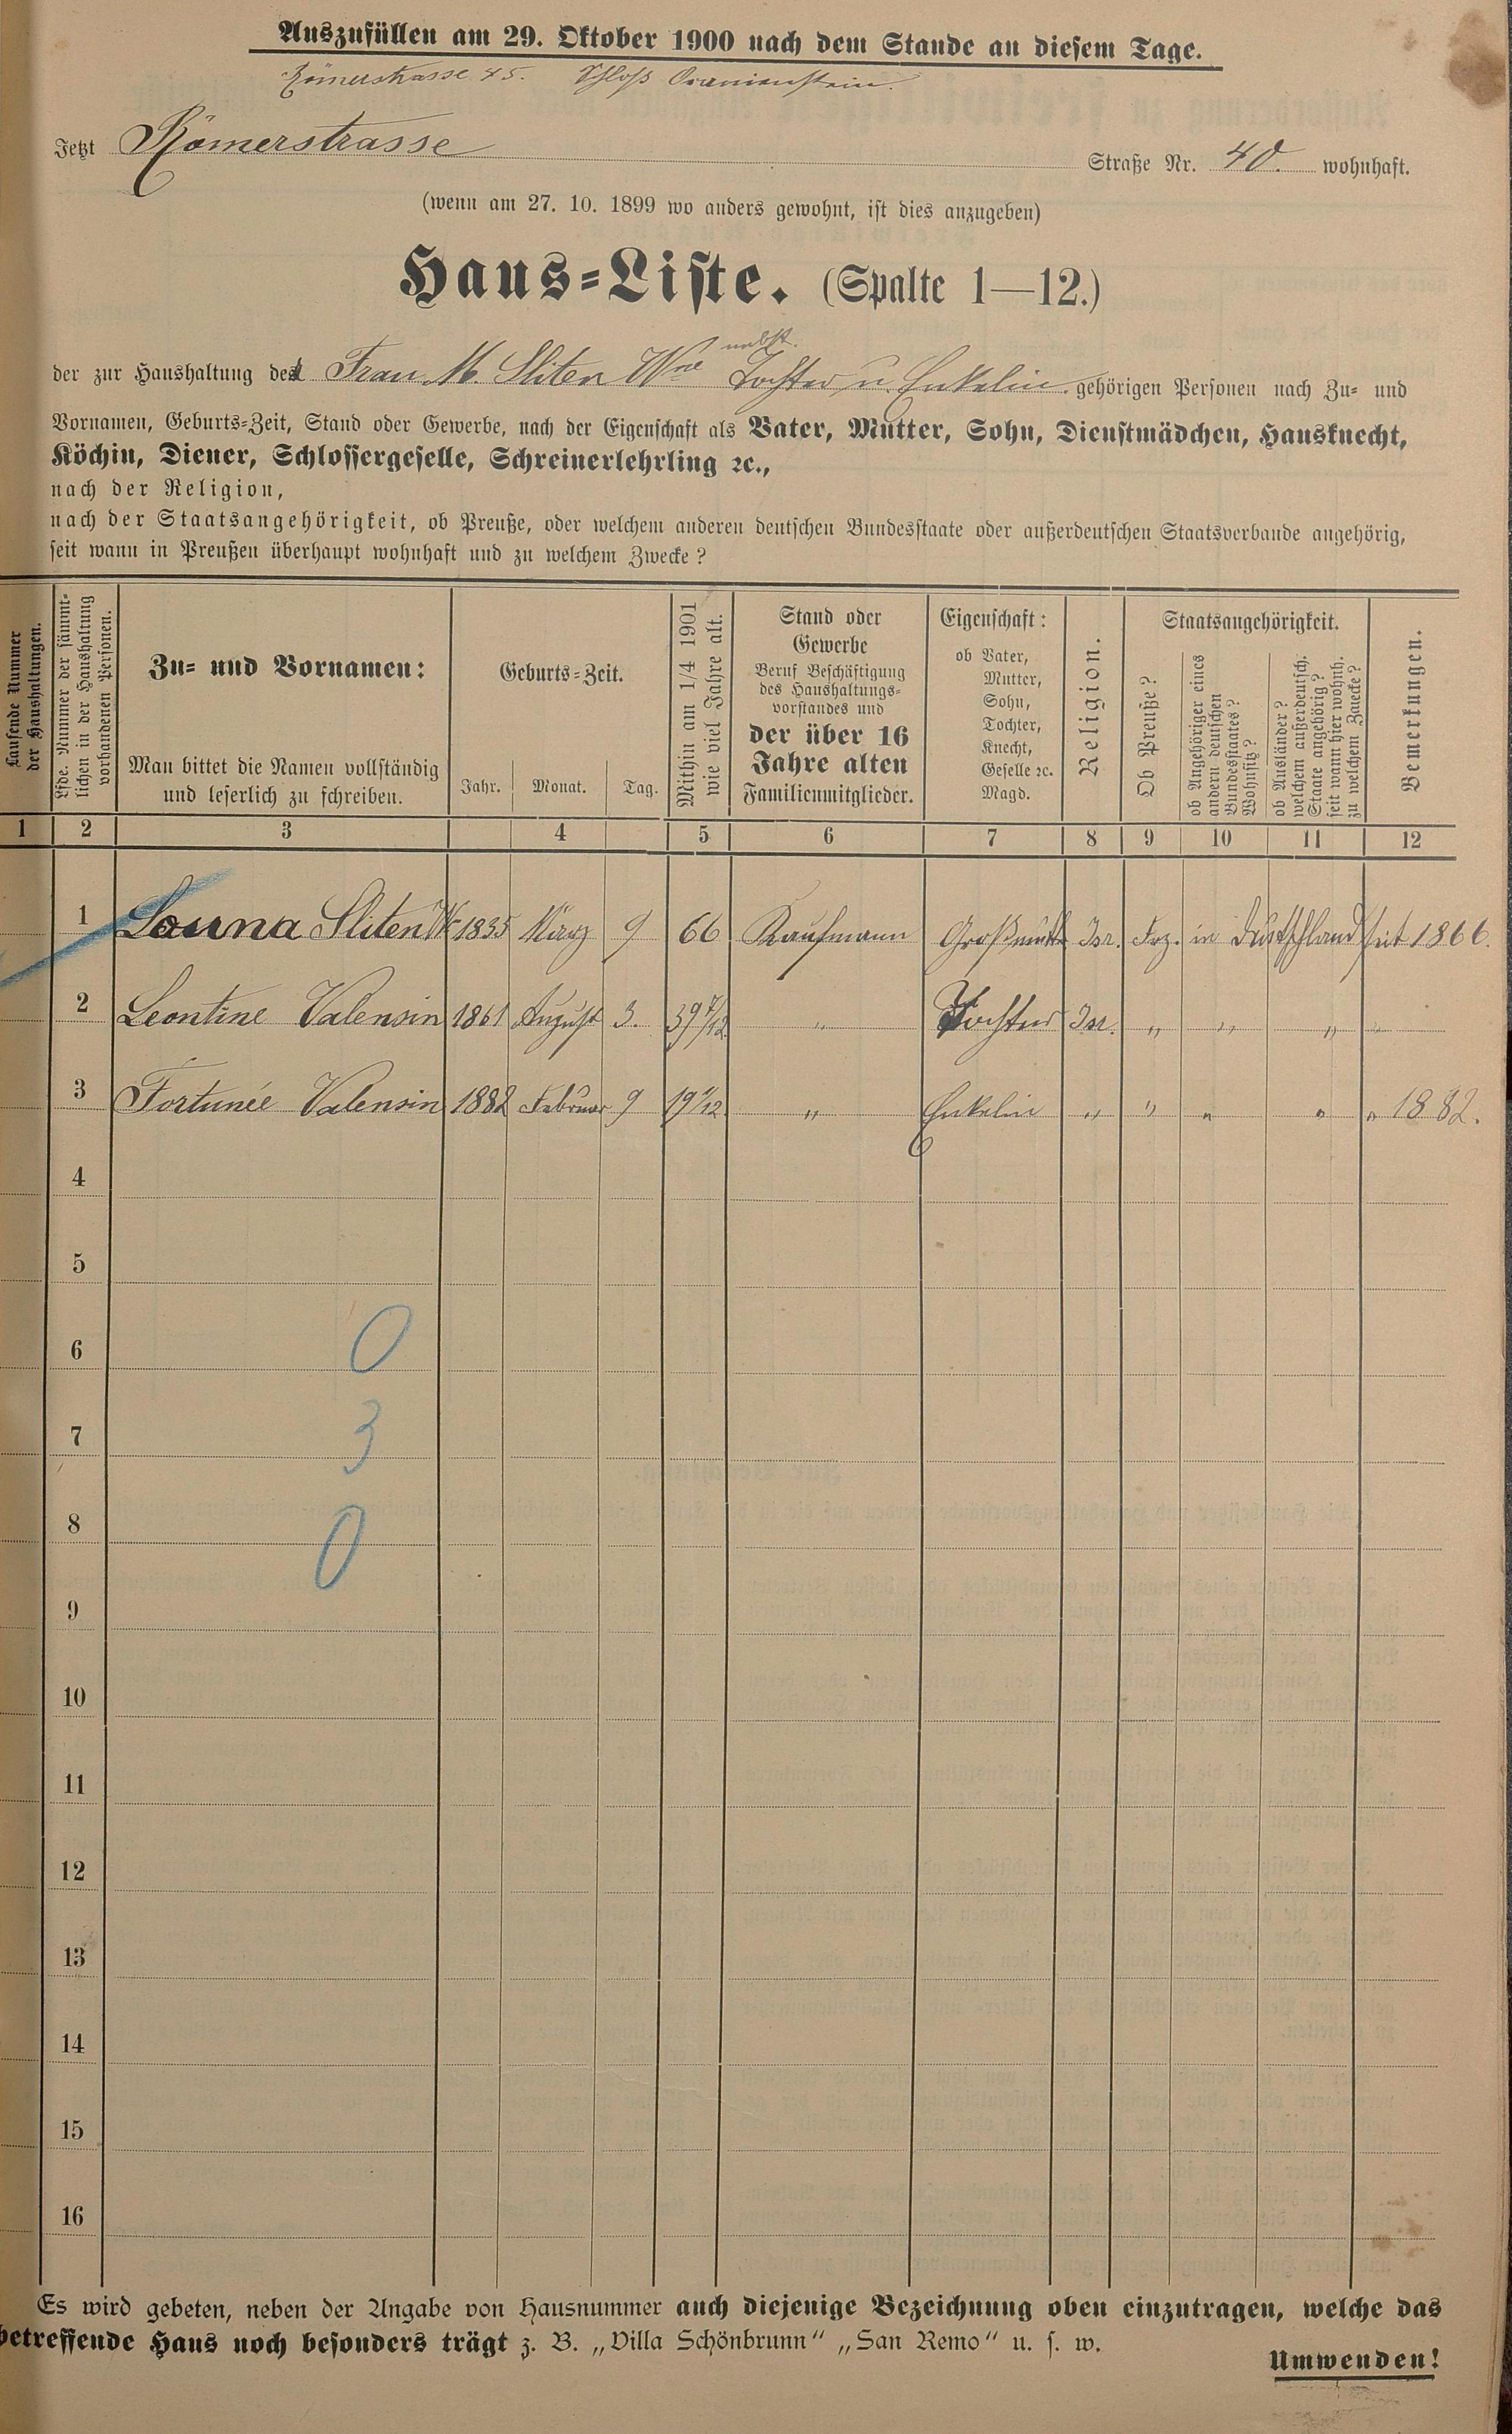 Auszufüllen am 29. Oktober 1900 nach dem Stande an diesem Tage.
Römerstrasse 45. Schloß Oranienstein.
Jetzt Römerstrasse Straße Nr. 40. wohnhaft.
(wenn am 27. 10. 1899 wo anders gewohnt, ist dies anzugeben)
Haus=Liste. (Spalte 1—12.)
nebst
der zur Haushaltung der Frau M. Sliten Wve Tochter u. Enkelin gehörigen Personen nach Zu= und
Vornamen, Geburts=Zeit, Stand oder Gewerbe, nach der Eigenschaft als Vater, Mutter, Sohn, Dienstmädchen, Hausknecht,
Köchin, Diener, Schlossergeselle, Schreinerlehrling ꝛc.,
nach der Religion,
nach der Staatsangehörigkeit, ob Preuße, oder welchem anderen deutschen Bundesstaate oder außerdeutschen Staatsverbande angehörig,
seit wann in Preußen überhaupt wohnhaft und zu welchem Zwecke?
Laufende Nummer
der Haushaltungen.
Lfde. Nummer der sämmt=
lichen in der Haushaltung
vorhandenen Personen.
Zu= und Vornamen:
Man bittet die Namen vollständig
und leserlich zu schreiben.
Geburts=Zeit.
Jahr. Monat. Tag.
Mithin am 1/4 1901
wie viel Jahre alt.
Stand oder
Gewerbe
Beruf Beschäftigung
des Haushaltungs=
vorstandes und
der über 16
Jahre alten
Familienmitglieder.
Eigenschaft:
ob Vater,
Mutter,
Sohn,
Tochter,
Knecht,
Geselle ꝛc.
Magd.
Religion.
Staatsangehörigkeit.
Ob Preuße?
ob Angehöriger eines
andern deutschen
Bundesstaates?
Wohnsitz?
ob Ausländer?
welchem außerdeutsch.
Staate angehörig?
seit wann hier wohnh.
zu welchem Zwecke?
Bemerkungen.
1 2 3 4 5 6 7 8 9 10 11 12
1 Sliten W 1835 März 9 66 Kaufmann Großmutter Isr. Frz. in Deutschland seit 1866.
2 Leontine Valensin 1861 August 3. 39 7/12 „ Tochter Isr. „ „ „ „
3 Fortunée Valensin 1882 Februar 9 19 1/12 „ Enkelin „ „ „ „ „ 1882.
4
5
6 0
7 3
8 0
9
10
11
12
13
14
15
16
Es wird gebeten, neben der Angabe von Hausnummer auch diejenige Bezeichnung oben einzutragen, welche das
betreffende Haus noch besonders trägt z. B. „Villa Schönbrunn“ „San Remo“ u. s. w.
Umwenden!